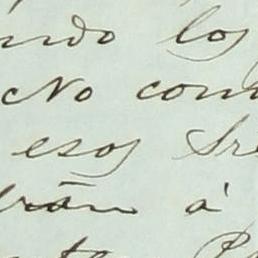 ndo los
No com
esos Sre
drán á